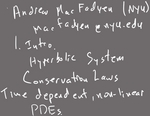 Andrew MacFadyen (NYU)
macfadyen@nyu.edu
1. Intro,
Hyperbolic System
Conservation Laws
Time dependent, non-linear
PDEs